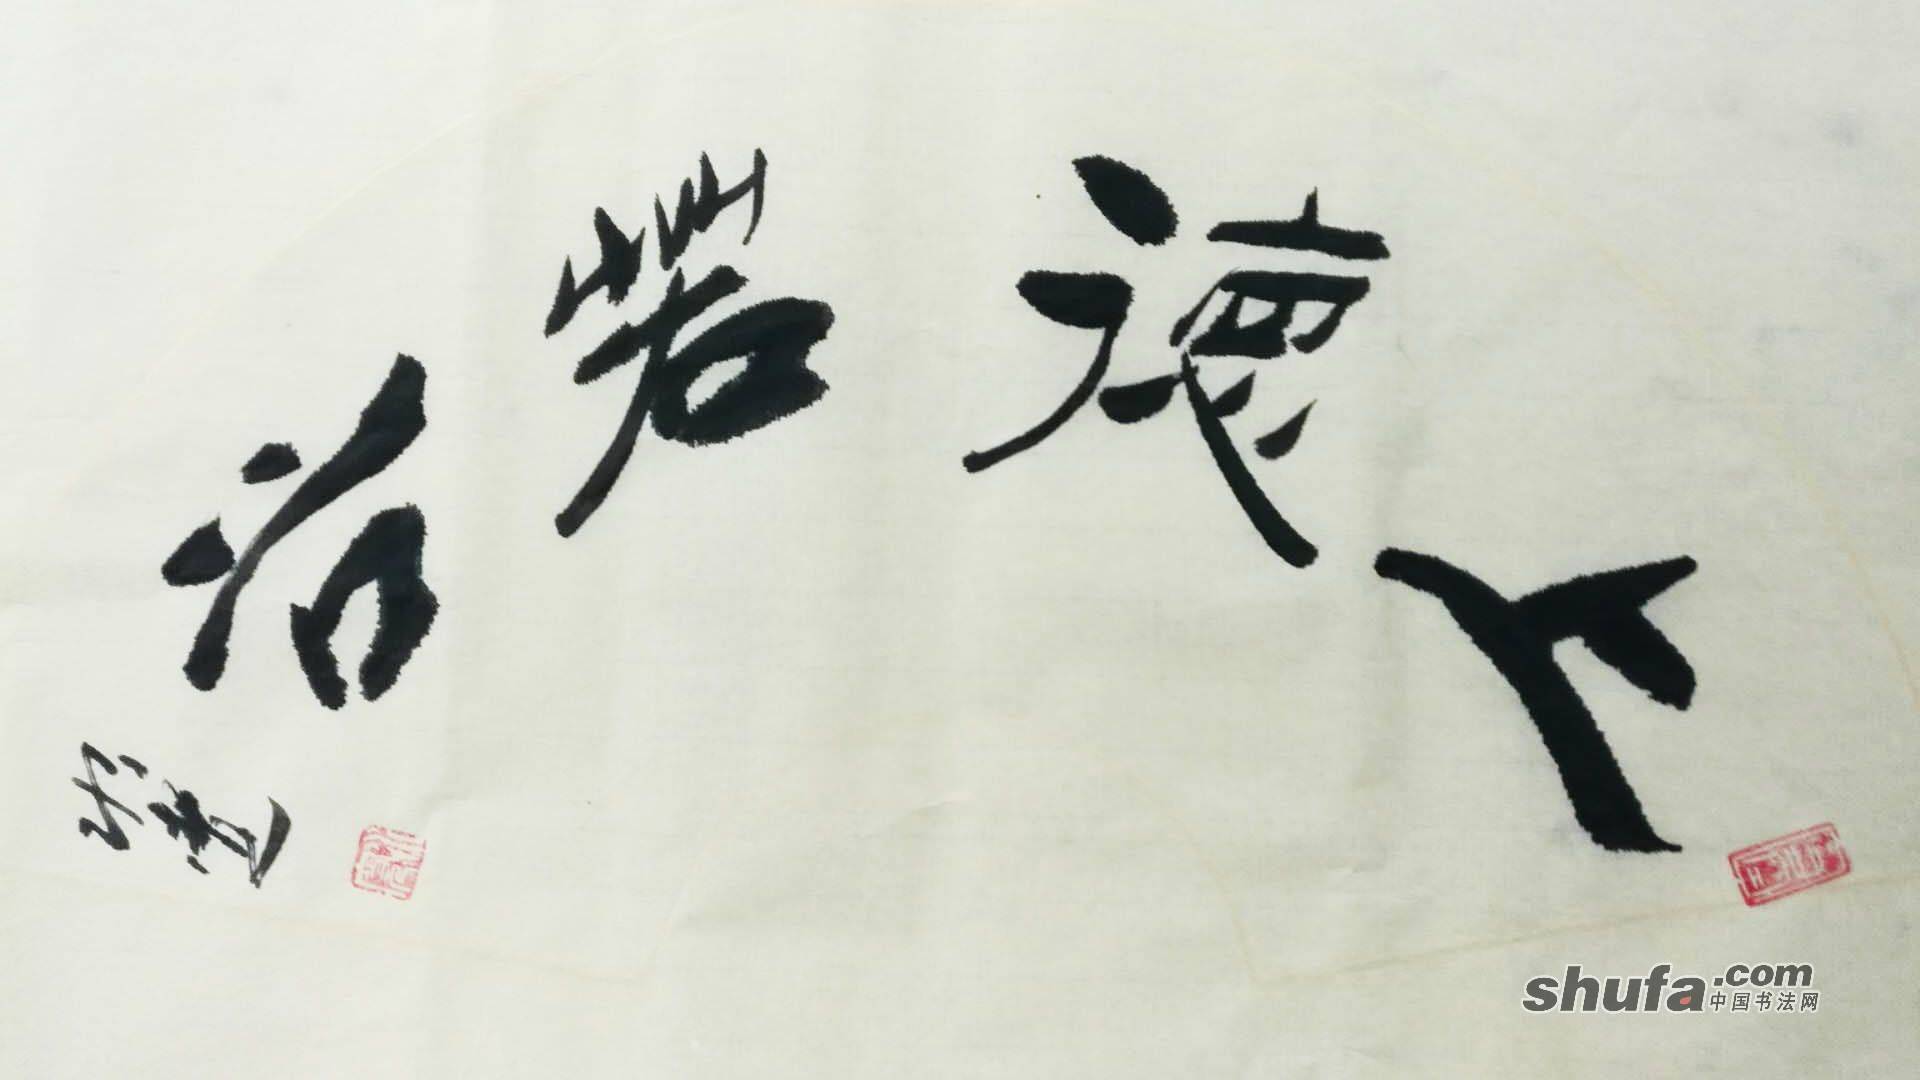 上德若谷
shufa.com
中国书法网